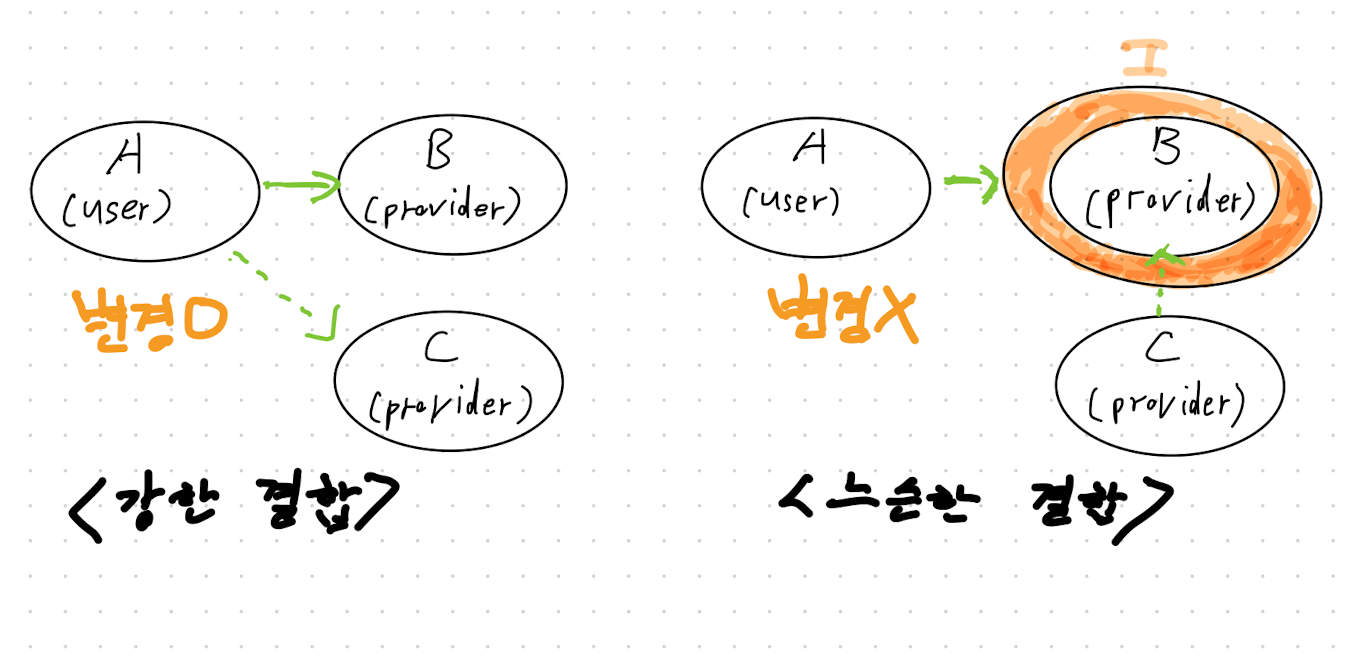 A
(user)
B
(provider)
변경O
C
(provider)
<강한 결합>
I
A
(user)
B
(provider)
변경X
C
(provider)
<느슨한 결합>